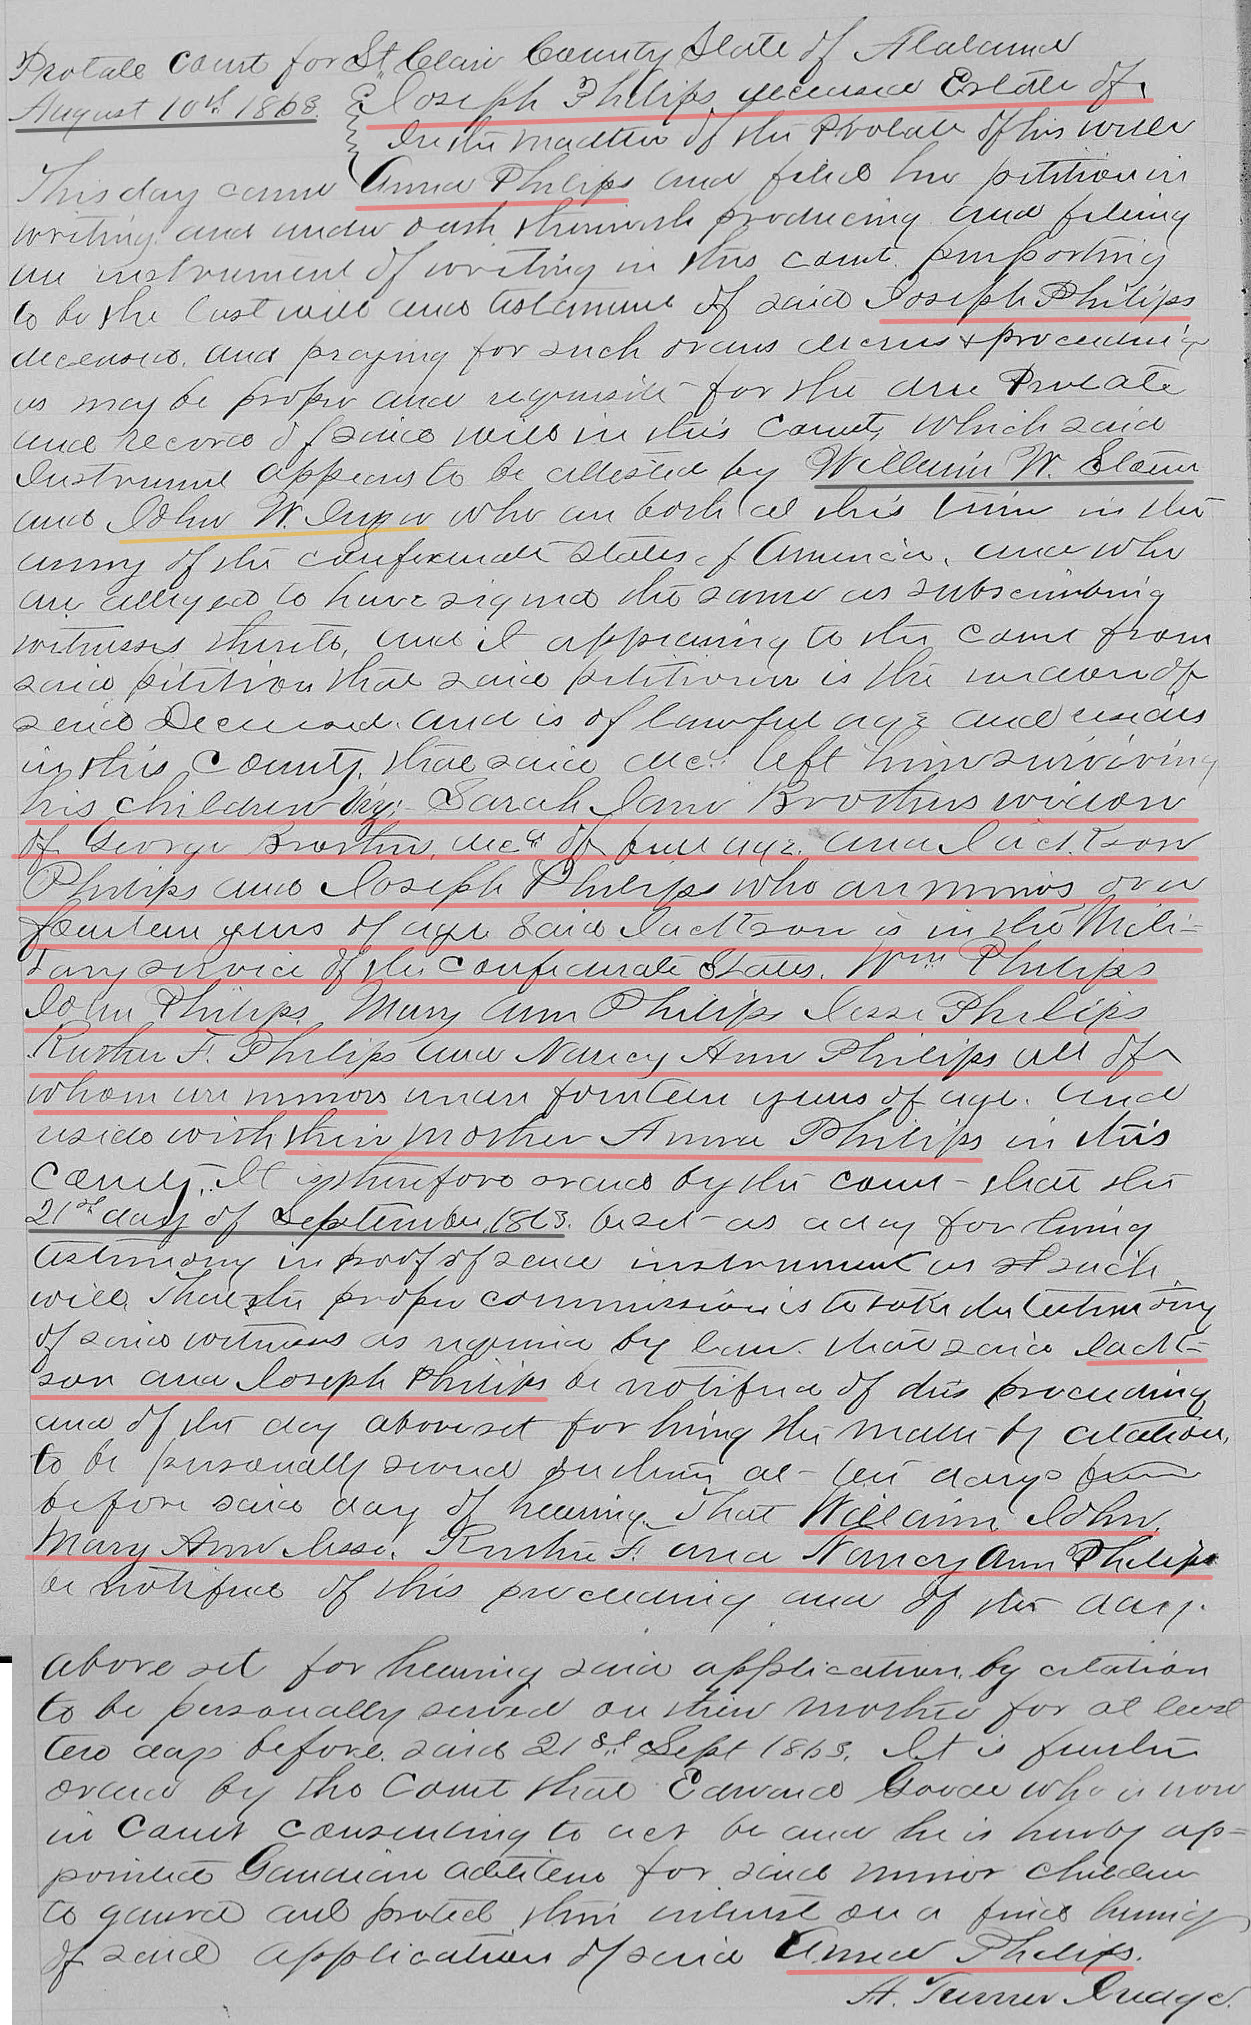 Probate Court for St. Clair County State of Alabama
August 10th 1863. Joseph Philips deceased Estate of
In the matter of the Probate of his will
This day came Anna Philips and filed her petition in
writing and under oath therewith producing and filing
an instrument of writing in this court purporting
to be the last will and testament of said Joseph Philips
deceased, and praying for such orders decrees & proceedings
as may be proper and requisite for the due Probate
and record of said will in this Court, which said
Instrument appears to be attested by William W.
and John W. who are both at this time in the
army of the confederate States of America, and who
are alleged to have signed the same as subscribing
witnesses thereto, and it appearing to the court from
said petition that said petitioner is the widow of
said Deceased and is of lawful age and resides
in this County, that said decd. left him surviving
his children Viz: Sarah Jane Brothers widow
of George Brothers, decd of full age, and Jackson
Philips and Joseph Philips who are minors over
fourteen years of age said Jackson is in the Mili-
tary service of the Confederate States, Wm Philips
John Philips, Mary Ann Philips Jesse Philips
F. Philips and Nancy Ann Philips all of
whom are minors under fourteen years of age. and
reside with their mother Anna Philips in this
County, It is therefore ordered by the court that the
21st day of September 1863. be set as a day for hearing
testimony in proof of said instrument as such
will. That the proper commission is to take the testimony
of said witness as required by law. that said Jack-
son and Joseph Philips be notified of this proceeding
and of the day above set for hearing the matter by citation,
to be personally served on them at ten days
before said day of hearing. That William, John,
Mary Ann Jesse, F. and Nancy Ann Philips
be notified of this proceeding and of the day.
above set for hearing said application, by citation
to be personally served on their mother for at least
ten days before said 21st Sept 1863. It is further
ordered by the Court that Edward Goode who is now
in Court consenting to act be and he is hereby ap=
pointed Guardian ad litem for said minor children
to guard and protect their interest on a final hearing
of said application of said Anna Philips.
A. Turner Judge.